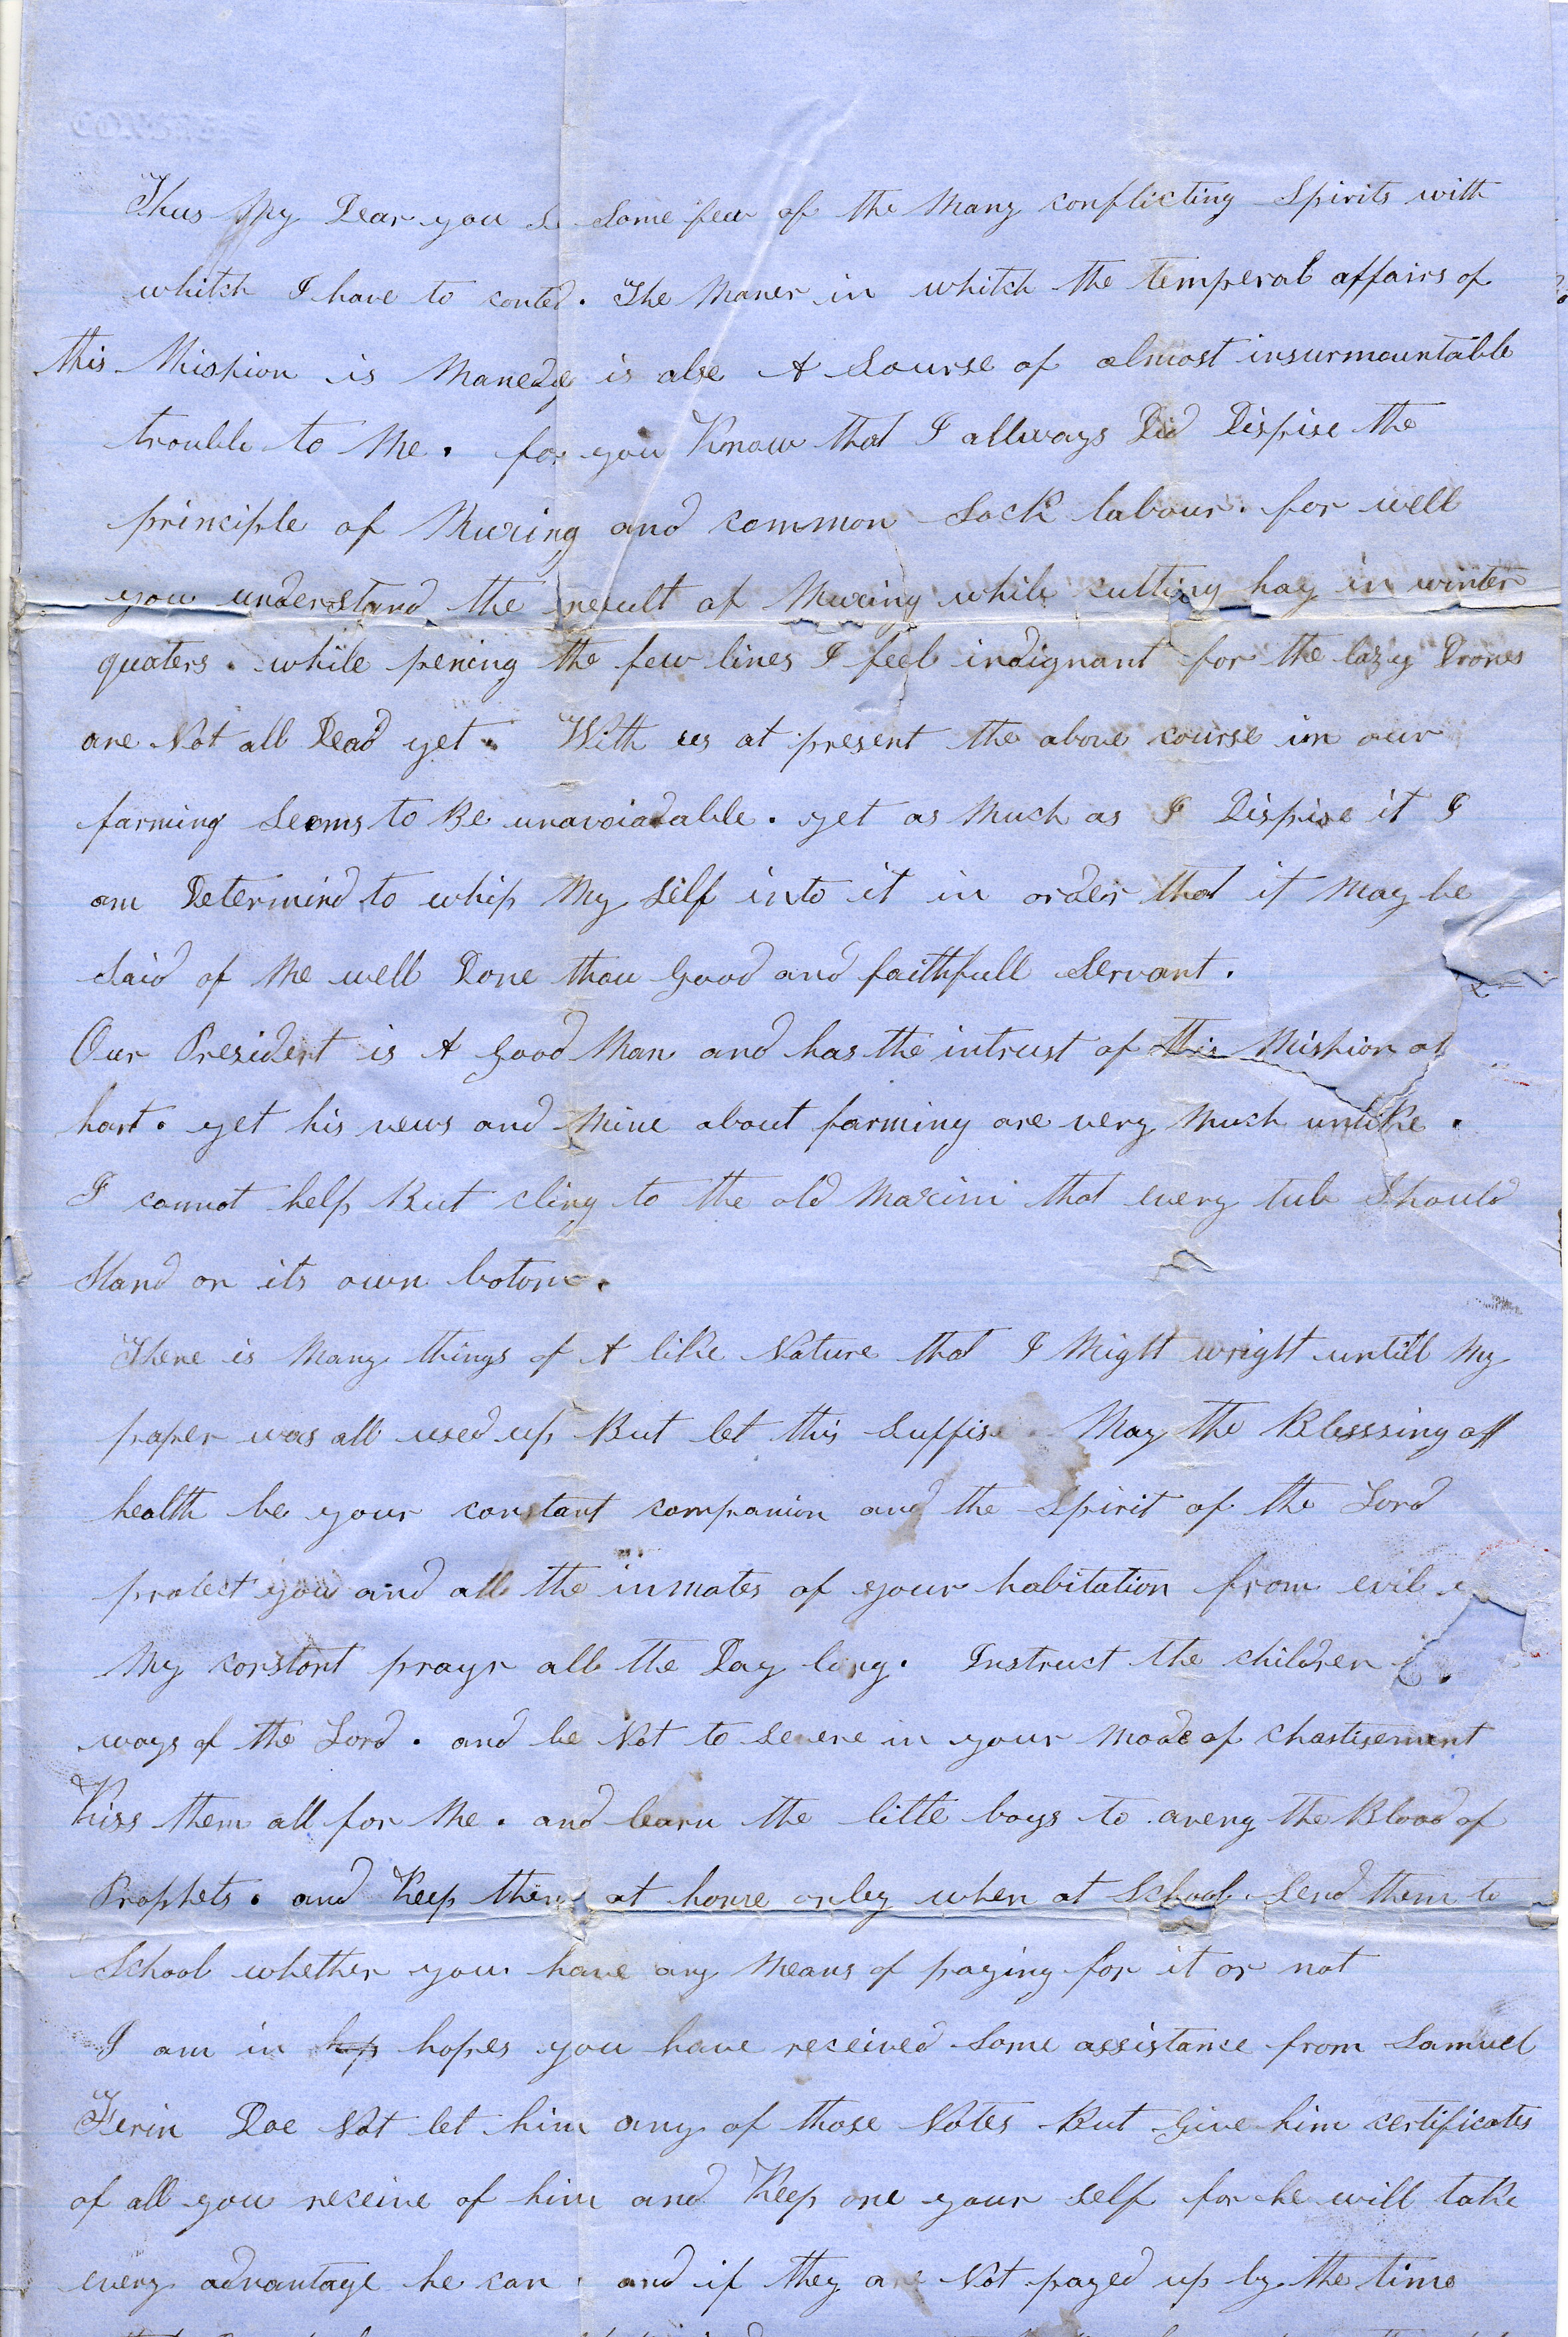 Thus My Dear you Some few of the Many conflicting Spirits with
whitch I have to conted. The Maner in whitch the temperal affairs of
this Mission is Manedge is alse A Sourse of almost insurmountable
trouble to Me. for you Know that I allways Did Dispise the
principle of Muxing and common Sock labour. for well
you understand the result of Muxing while cutting hay in winter
quaters. while pening the few lines I feel indignant for the lazy Drones
are Not all Dead yet. With us at present the above course in our
farming Seems to Be unavoiadable. yet as Much as I Dispise it I
am Determind to whip My Self into it in order that it May be
Said of Me well Done thou Good and faithfull Servant.
Our President is A Good Man and has the intrust of this Mission at
hart. yet his vews and Mine about farming are very Much unlike.
I cannot help But cling to the old Maxim that every tub Should
Stand on its own botom.
There is Many things of A like Nature that I Might wright untill My
paper was all used up But let this Suffise. May the Blesssing off
health be your constant companion and the Spirit of the Lord
protect you and all the inmates of your habitation from evil
My constant prayr all the Day long. Instruct the children
ways of the Lord. and be Not to Severe in your Mode of chastisement
Kiss them all for Me. and learn the little boys to aveng the Blood of
Prophets. and Keep them at home onley when at School. Send them to
School whether you have any Means of paying for it or not
I am in hop hopes you have received Some assistance from Samuel
Ferin Doe Not let him any of those Notes But Give him certificates
of all you receive of him and Keep one your Self for he will take
every advantage he can. and if they are Not payed up by the time